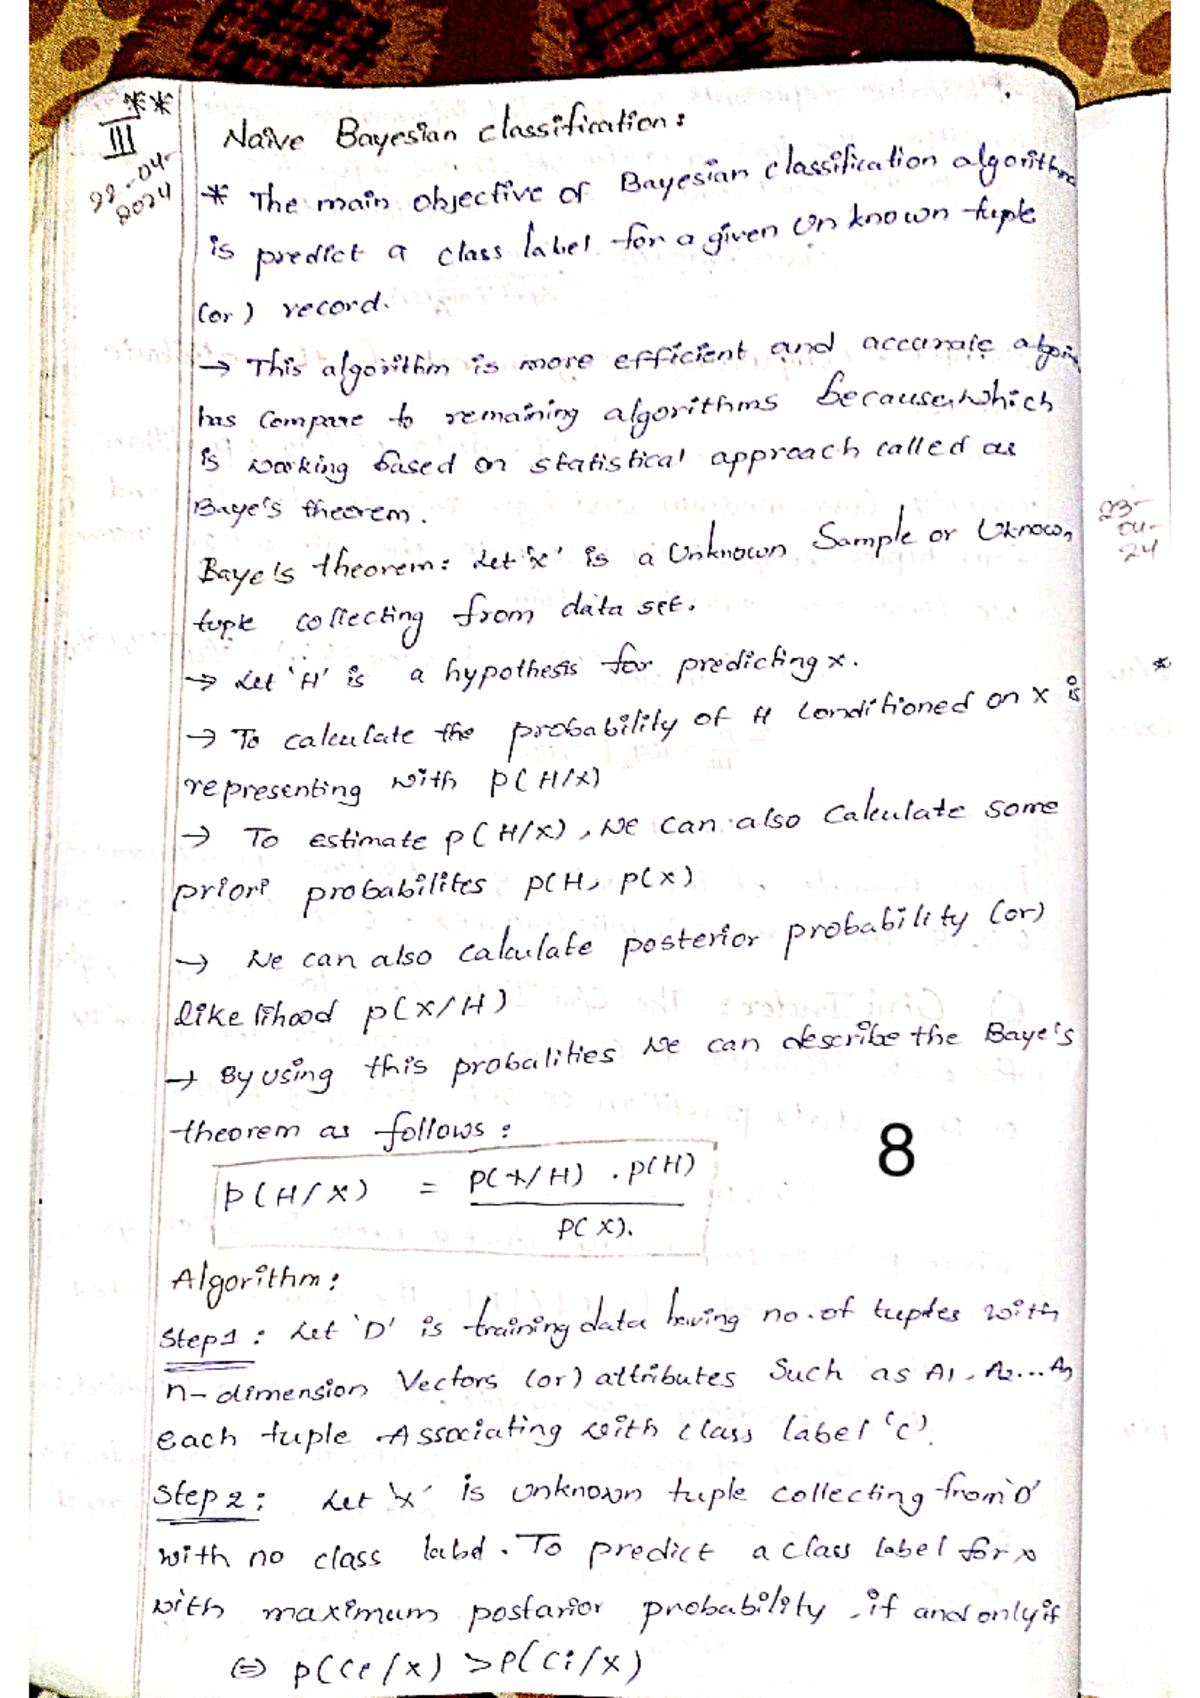 **
III
22-04-
2024
Naive Bayesian classification:
* The main objective of Bayesian classification algorithm
is predict a class label for a given Unknown tuple
(or) record.
→ This algorithm is more efficient and accurate
has Compare to remaining algorithms because, which
is working based on statistical approach called as
Baye's theorem.
Baye's theorem: Let 'x' is a Unknown Sample or Uknown
tuple collecting from data set.
→ Let 'H' is a hypothesis for predicting x.
→ To calculate the probability of H Conditioned on x is
representing with P(H/x)
→ To estimate P(H/x), We can also Calculate some
priori probabilites P(H), P(x)
→ We can also calculate posterior probability (or)
likelihood P(X/H)
→ By using this probalities we can describe the Baye's
theorem as follows:
P(H/X) = P(X/H) . P(H)
P(X).
8
Algorithm:
Step1: Let 'D' is training data having no.of tuples with
n-dimension Vectors (or) attributes Such as A1, A2...An
each tuple Associating with class label 'C'.
Step 2: Let 'X' is unknown tuple collecting from 'D'
with no class label. To predict a class label for x
with maximum postarior probability, if and only if
⇔ P(Ce/x) > P(Ci/x)
23-
04-
24
*